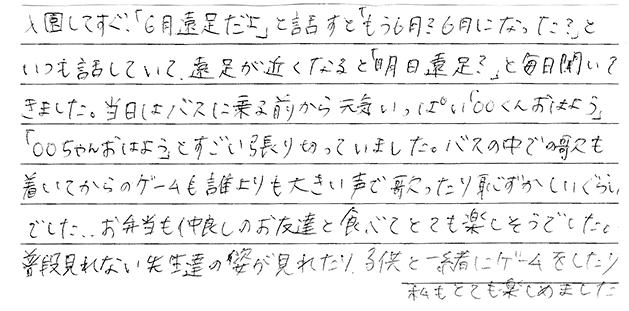 入園してすぐ、「6月遠足だよ」と話すと「もう6月？6月になった？」と
いつも話していて、遠足が近くなると「明日遠足？」と毎日聞いて
きました。当日はバスに乗る前から元気いっぱい「○○くんおはよう」
「○○ちゃんおはよう」とすごい張り切っていました。バスの中での歌も
着いてからのゲームも誰よりも大きい声で歌ったり恥ずかしいくらい
でした‥お弁当も仲良しのお友達と食べてとても楽しそうでした。
普段見れない先生達の姿が見れたり、子供と一緒にゲームをしたり
私もとても楽しめました